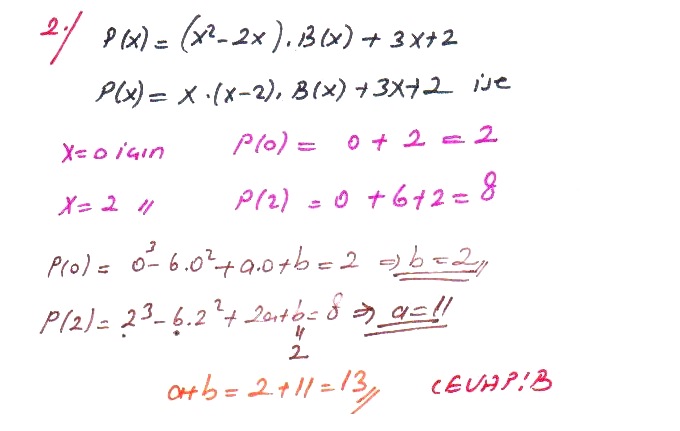 2-) P(x) = (x² - 2x) . B(x) + 3x+2
P(x) = x . (x-2) . B(x) + 3x+2 ise
x=0 için P(0) = 0 + 2 = 2
x= 2 〃 P(2) = 0 + 6+2 = 8
P(0) = 0³ - 6.0² + a.0 + b = 2 ⇒ b = 2,,
P(2) = 2³ - 6.2² + 2a + b = 8 ⇒ a = 11
〃
2
a+b = 2 + 11 = 13,, CEVAP: B